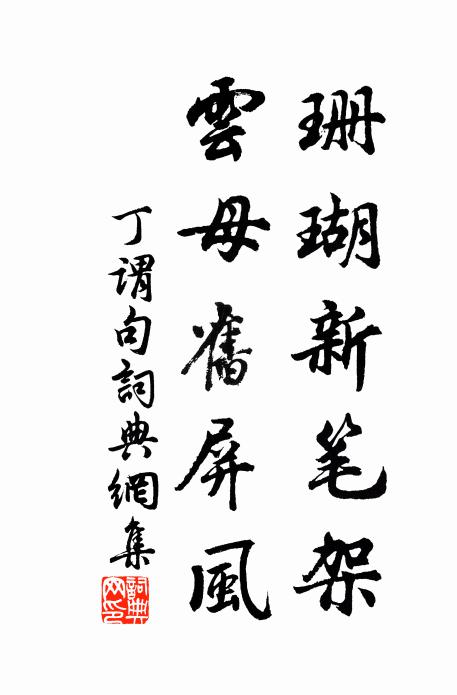 珊瑚新笔架
雲母舊屏風
丁谓句詞典網集
詞典网印